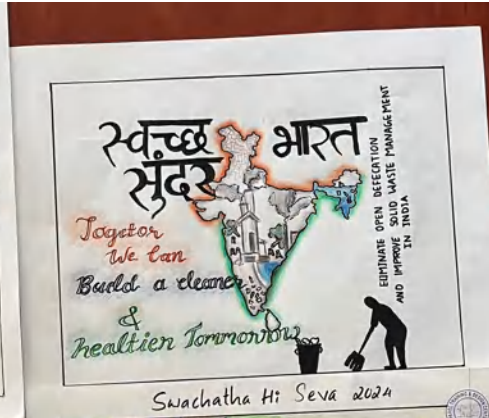 स्वच्छ भारत
सुंदर
Togetor
We Can
Build a cleaner
&
healtien Tommorrow
ELIMINATE OPEN DEFECATION
AND IMPROVE SOLID WASTE MANAGEMENT
IN INDIA
Swachatha Hi Seva 2024